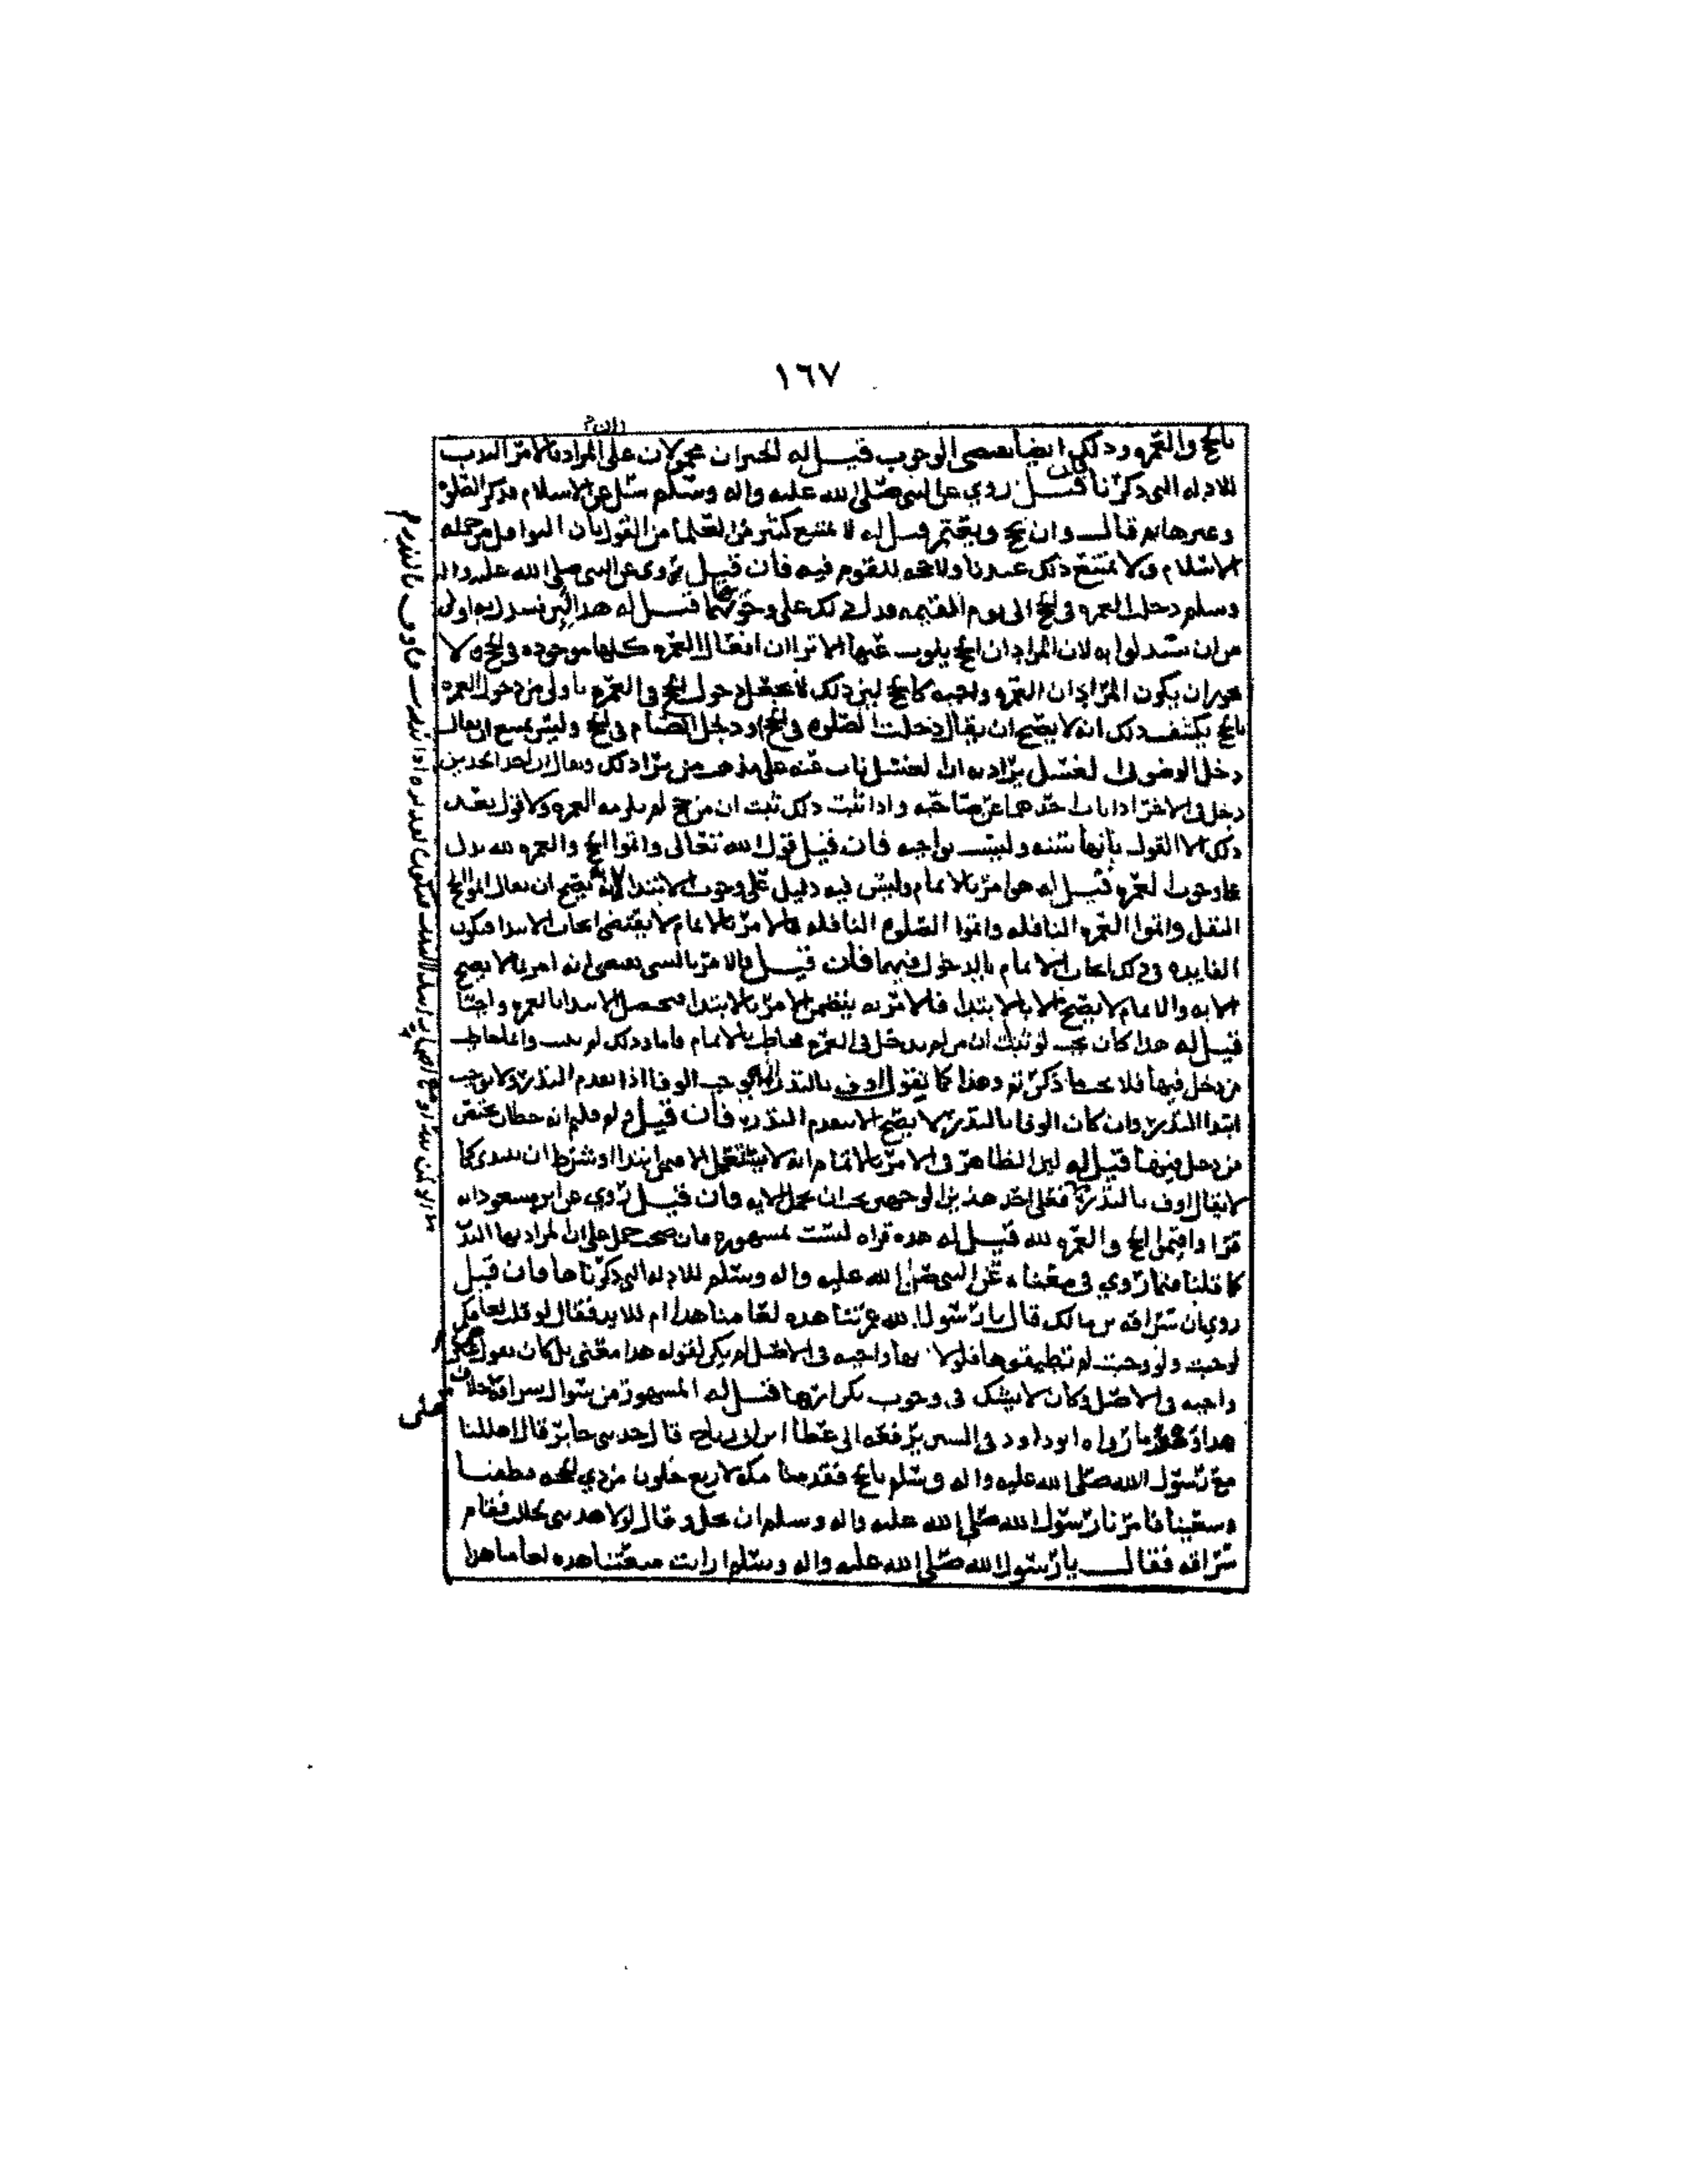 ١٦٧
بالحج والعمره وذلك ايضا يقتضي الوجوب قيل له الخبران محمولان على المراد بالامر الندب
للادله التي ذكرنا فان قيل روي عن النبي صلى الله عليه واله وسلم سئل عن الاسلام فذكر الصلوة
وغيرها ثم قال وان تحج وتعتمر قيل له لا يمتنع كثير من العلما من القول بان النوافل من جمله
الاسلام ولا يمتنع ذلك عندنا ولا حجه للقوم فيه فان قيل روي عن النبي صلى الله عليه واله
وسلم دخلت العمره في الحج الى يوم القيمه فدل ذلك على وجوبها قيل له هذا لان نستدل به اولى
من ان تستدلوا به لان المراد ان الحج ينوب عنها الا ترا ان افعال العمره كلها موجوده في الحج ولا
يجوز ان يكون المراد ان العمره واجبه كالحج لان ذلك لا يجعل دخول الحج في العمره باولى من دخول العمره
بالحج يكشف ذلك انه لا يصح ان يقال دخلت الصلوه في الحج ودخل الصيام في الحج وليس يمتنع ان يقال
دخل الوضو في الغسل يراد به ان الغسل ناب عنه على مذهب من يرا ذلك ويقال ان احد الحدين
دخل في الاخر اذا ناب احدهما عن صاحبه واذا ثبت ذلك ثبت ان من حج لم يلزمه العمره ولا قول بعد
ذلك الا القول بانها سنه وليست بواجبه فان قيل قول الله تعالى واتموا الحج والعمره لله يدل
على وجوب العمره قيل له هو امر بالاتمام وليس فيه دليل على وجوب الابتدا لانه يصح ان يقال اتموا الحج
النفل واتموا العمره النافله واتموا الصلوه النافله فالامر بالاتمام لا يقتضي ايجاب الابتدا فيكون
الفايده في ذلك ايجاب الاتمام بالدخول فيهما فان قيل فالامر بالشي يقتضي انه امر بما لا يصح
الا به والاتمام لا يصح الا بالابتدا فالامر به يتضمن الامر بالابتدا فيحصل الابتدا بالعمره واجبا
قيل له هذا كان يجب لو ثبت ان من لم يدخل في العمره مخاطب بالاتمام فاما وذلك لم يثبت وانما يخاطب
من دخل فيها فلا يجب ما ذكرتم وهذا كما نقول اوف بالنذر انه يوجب الوفا اذا تقدم النذر ولا يوجب
ابتدا النذر وان كان الوفا بالنذر لا يصح الا بتقدم النذر فان قيل ولم قلتم انه خطاب يختص
من دخل فيها قيل له لان الظاهر في الامر بالاتمام انه لا يستعمل الا فيمن ابتدا او بشرط ان يبتدي كما
لا يقال اوف بالنذر فعلى احد هذين الوجهين يجب ان تحمل الايه فان قيل روي عن ابن مسعود انه
قرا واقيموا الحج والعمره لله قيل له هذه قراه ليست بمشهوره فان صحت حمل على ان المراد بها الندب
كما قلنا فيما روي في معناه عن النبي صلى الله عليه واله وسلم للادله التي ذكرناها فان قيل
روي ان سراقه بن مالك قال يا رسول الله عمرتنا هذه لعامنا هذا ام للابد فقال لو قلت لعامكم
لوجبت ولو وجبت لم تطيقوها فلولا انها واجبه في الاصل لم يكن لقوله هذا معنى بل كان يقول
واجبه في الاصل وكان لا يشك في وجوب تكرارها قيل له المشهور من سوال سراقه خلاف
هذا وهو ما رواه ابو داود في السنن يرفعه الى عطا ابن ابي رباح قال حدثني جابر قال اهللنا
مع رسول الله صلى الله عليه واله وسلم بالحج فقدمنا مكه لاربع خلون من ذي الحجه فطفنا
وسعينا فامرنا رسول الله صلى الله عليه واله وسلم ان نحل وقال لولا هديي لحللت فقام
سراقه فقال يا رسول الله صلى الله عليه واله وسلم ارايت متعتنا هذه لعامنا هذا